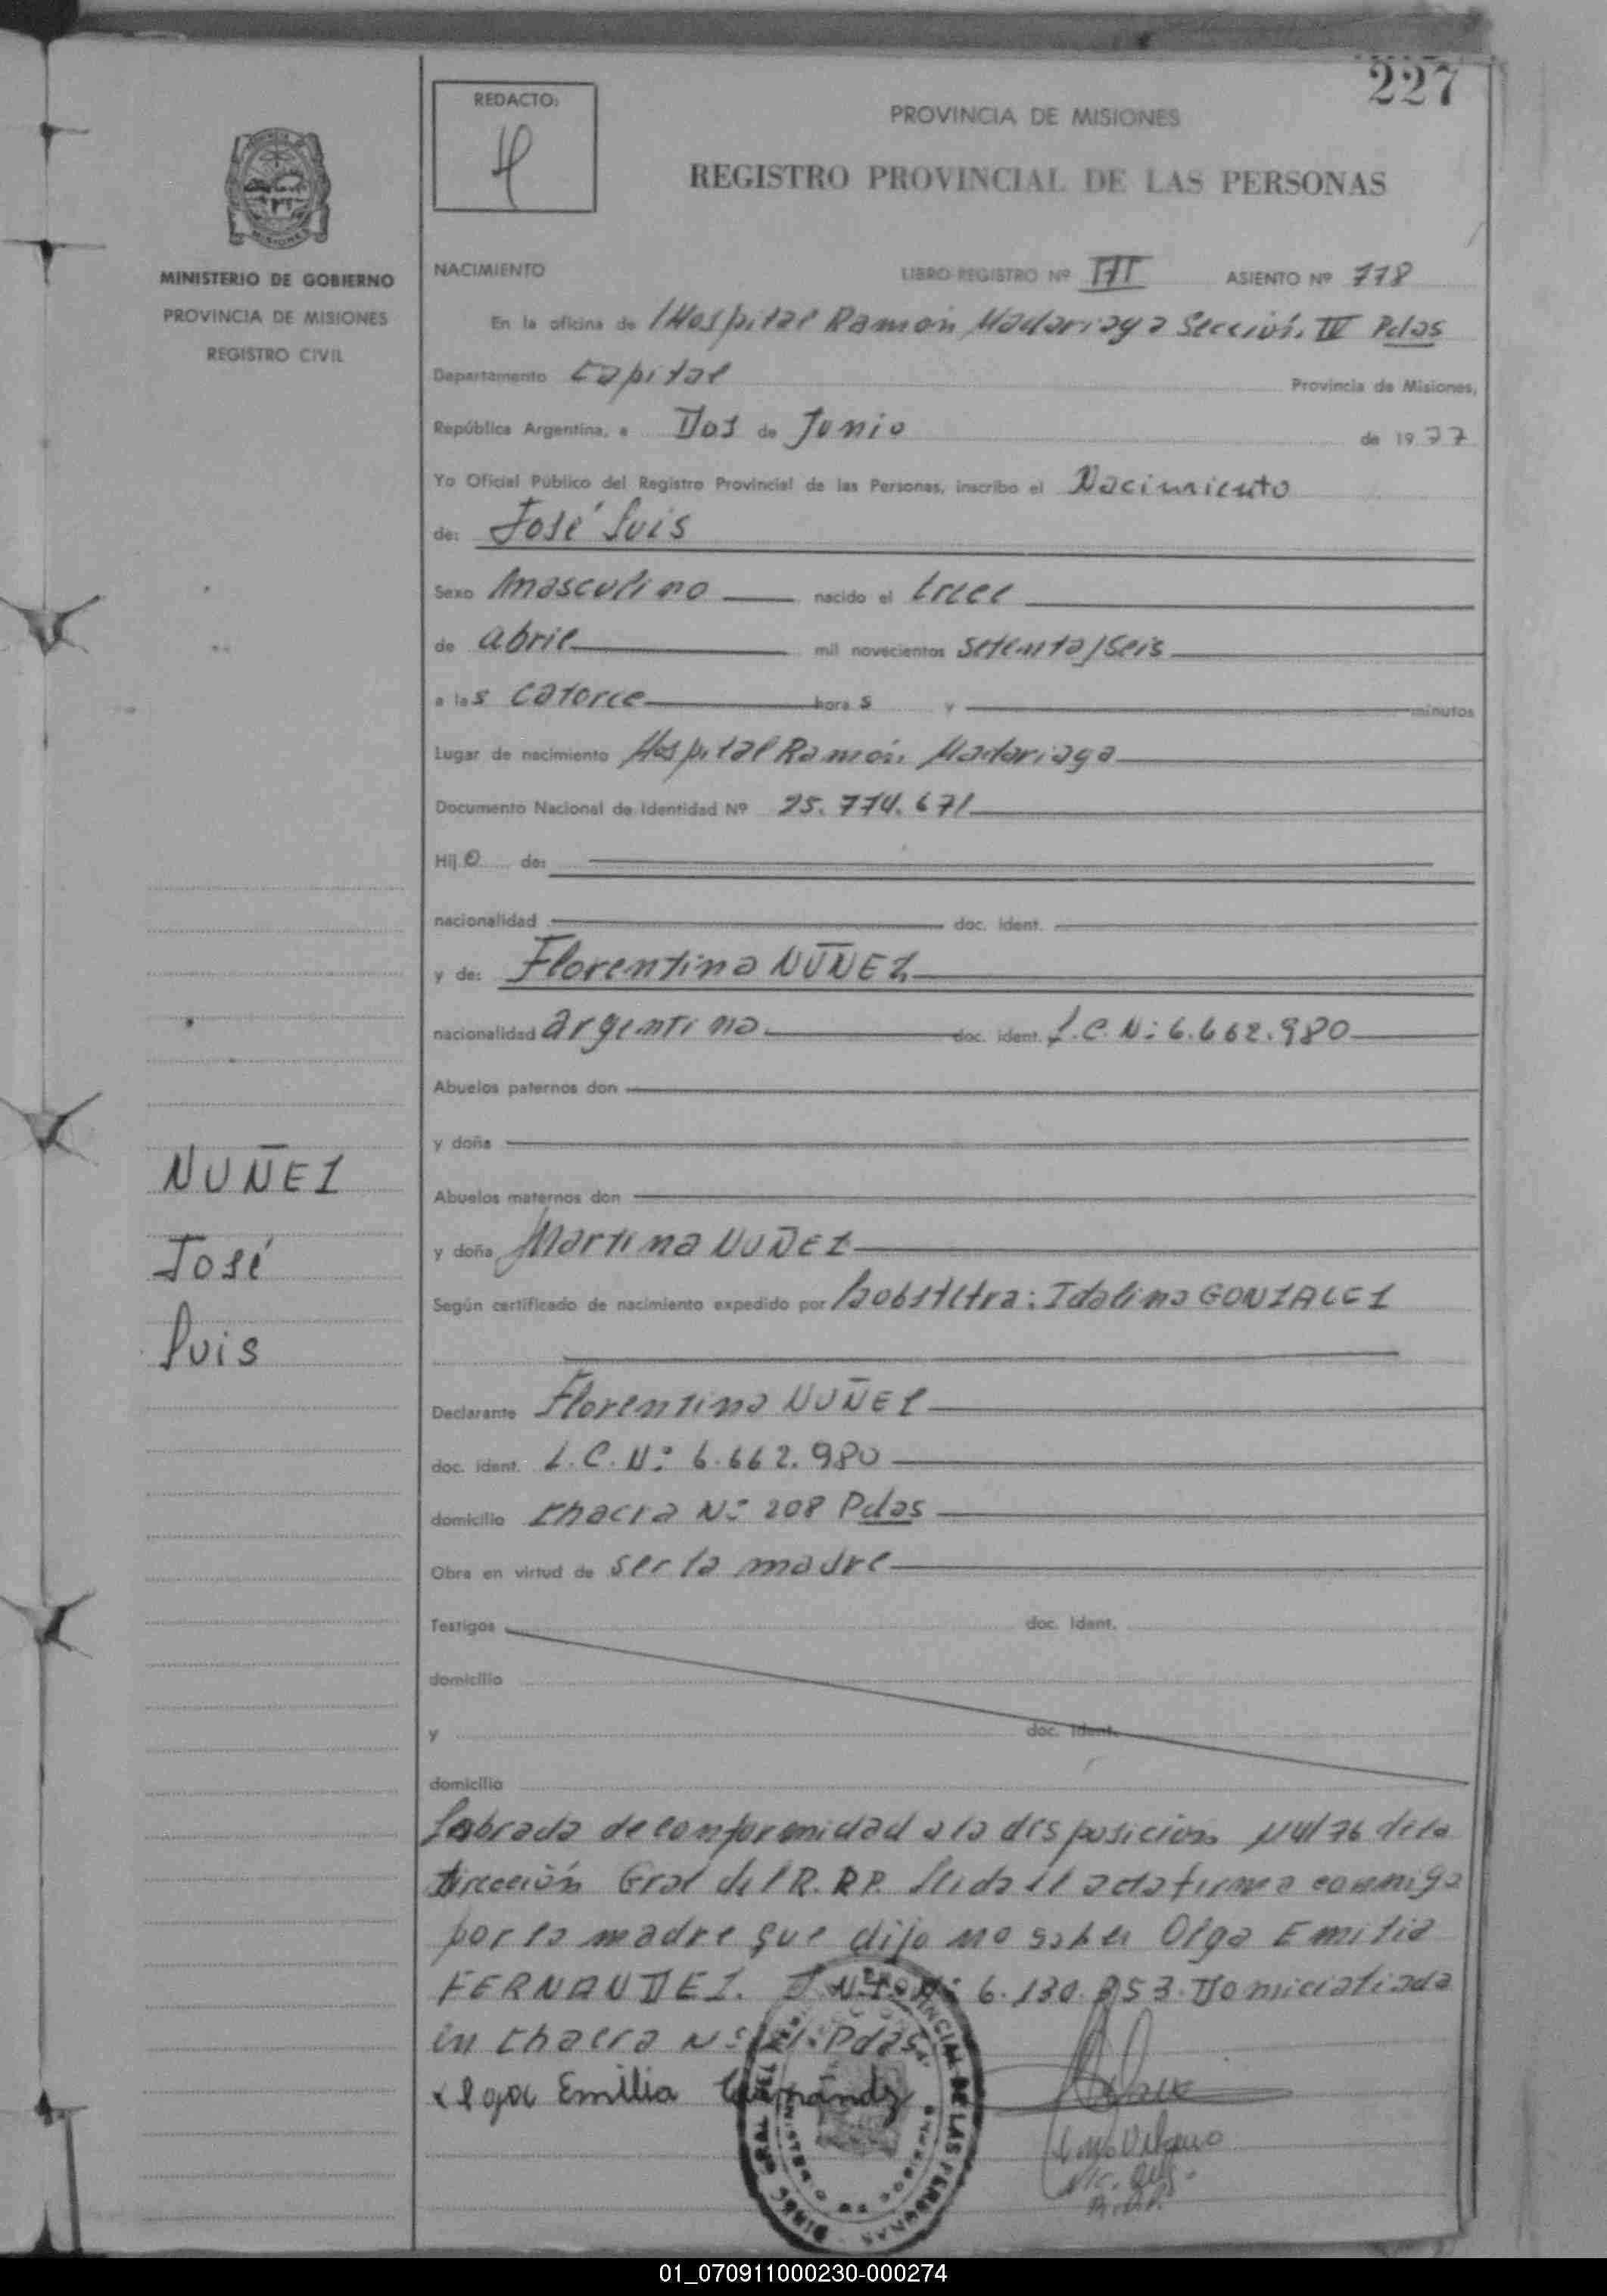 227
REDACTO:
PROVINCIA DE MISIONES
REGISTRO PROVINCIAL DE LAS PERSONAS
MISIONES
MINISTERIO DE GOBIERNO
PROVINCIA DE MISIONES
REGISTRO CIVIL
NACIMIENTO LIBRO REGISTRO Nº III ASIENTO Nº 778
En la oficina de Hospital Ramón Madariaga Sección IV Pdas
Departamento Capital Provincia de Misiones,
República Argentina, a Dos de Junio de 1977
Yo Oficial Público del Registro Provincial de las Personas, inscribo el Nacimiento
de: José Luis
Sexo masculino nacido el trece
de abril mil novecientos setenta/seis
a las catorce horas y minutos
Lugar de nacimiento Hospital Ramón Madariaga
Documento Nacional de Identidad Nº 25.774.671
Hijo de:
nacionalidad doc. ident.
y de: Florentina NUÑEZ
nacionalidad argentina doc. ident. L.C.N: 6.662.980
Abuelos paternos don
y doña
Abuelos maternos don
y doña Martina NUÑEZ
Según certificado de nacimiento expedido por obstetra: Idalina GONZALEZ
NUÑEZ
José
Luis
Declarante Florentina NUÑEZ
doc. ident. L.C.N: 6.662.980
domicilio Chacra N: 208 Pdas
Obra en virtud de ser la madre
Testigos doc. Ident.
domicilio
y doc. Ident.
domicilio
Labrada de conformidad a la disposición 76 de la
Dirección Gral del R.P.P. Leida el acta firma conmigo
por la madre que dijo no saber Olga Emilia
FERNANDEZ. 6.130. Domiciliada
en Chacra Pdas.
Olga Emilia
PROVINCIAL DE LAS PERSONAS
01_070911000230-000274